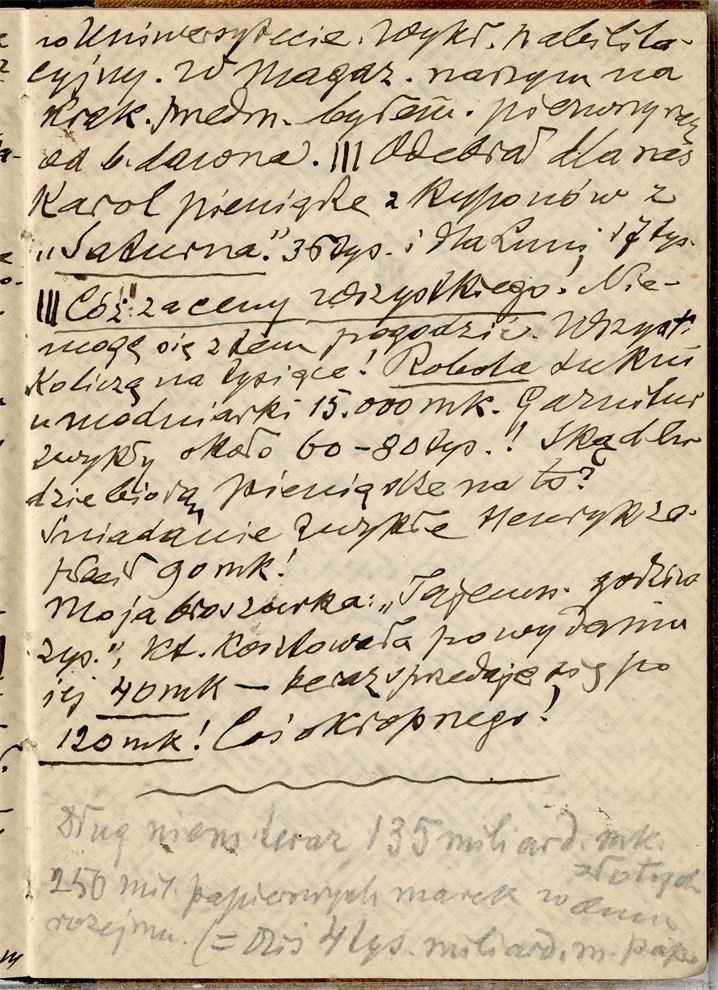 w Uniwersytecie. Wykł. habilita-
cyjny. W Magaz. naszym na
Krak. Przedm. byłem. pierwszy raz
od b. dawna. ||| Odebrał dla nas
Karol pieniądze z kuponów z
„Saturna". 36 tys. i dla Luni 17 tys.
||| Cóż za ceny wszystkiego! Nie-
mogę się z tem pogodzić. Wszyst-
ko liczą na tysiące! Robota sukni
u modniarki 15.000 mk. Garnitur
zwykły około 60-80 tys.!! Skąd lu-
dzie biorą pieniądze na to?
Śniadanie zwykłe Henryk za-
płacił 90 mk!
Moja broszurka: „Tajemn. godzina
, kt. kosztowała po wydaniu
jej 40 mk — teraz sprzedaje się po
120 mk! Coś okropnego!
Dług niem. teraz 135 miliard. mk.
złotych
250 mil. papierowych marek w dniu
rozejmu. (= Dziś 4 tys. miliard. m. pap.